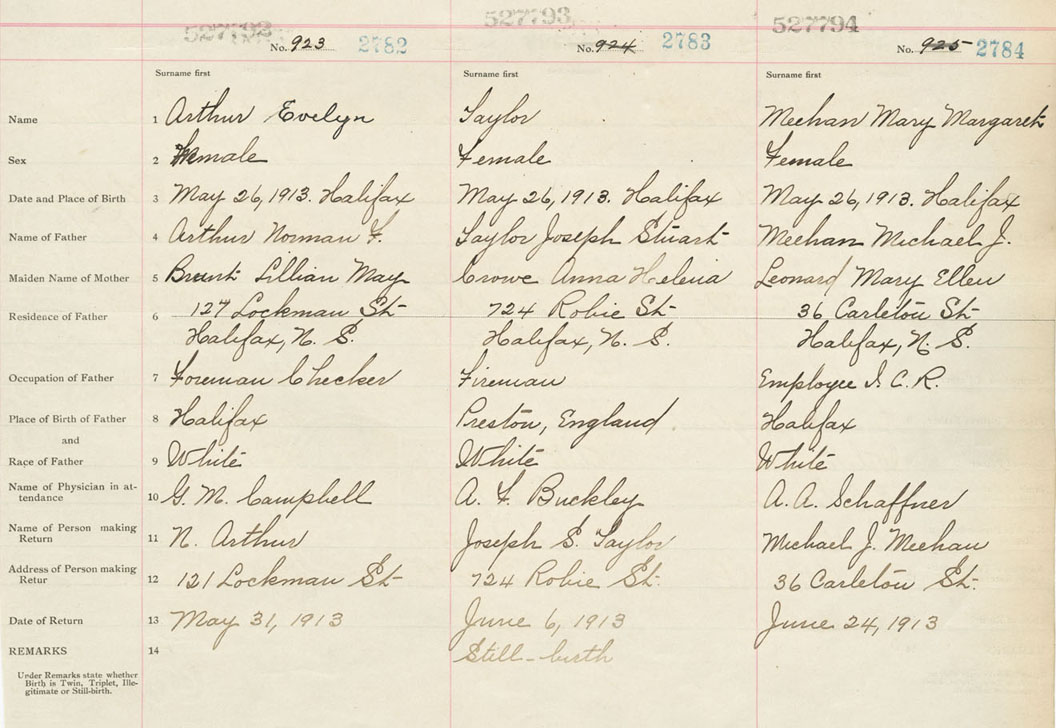 527792 527793 527794
No. 923 2782 No. 924 2783 No. 925 2784
Surname first Surname first Surname first
Name 1 Arthur Evelyn Taylor Meehan Mary Margaret
Sex 2 Female Female Female
Date and Place of Birth 3 May 26, 1913. Halifax May 26, 1913. Halifax May 26, 1913. Halifax
Name of Father 4 Arthur Norman F. Taylor Joseph Stuart Meehan Michael J.
Maiden Name of Mother 5 Brunt Lillian May Crowe Anna Helena Leonard Mary Ellen
Residence of Father 6 127 Lockman St 724 Robie St 36 Carleton St
Halifax, N. S. Halifax, N. S. Halifax, N. S.
Occupation of Father 7 Foreman Checker Fireman Employee I. C. R.
Place of Birth of Father 8 Halifax Preston, England Halifax
and
Race of Father 9 White White White
Name of Physician in at-
tendance 10 G. M. Campbell A. F. Buckley A. A. Schaffner
Name of Person making
Return 11 N. Arthur Joseph S. Taylor Michael J. Meehan
Address of Person making
Retur 12 121 Lockman St 724 Robie St. 36 Carleton St.
Date of Return 13 May 31, 1913 June 6, 1913 June 24, 1913
REMARKS 14 Still-birth
Under Remarks state whether
Birth is Twin, Triplet, Ille-
gitimate or Still-birth.